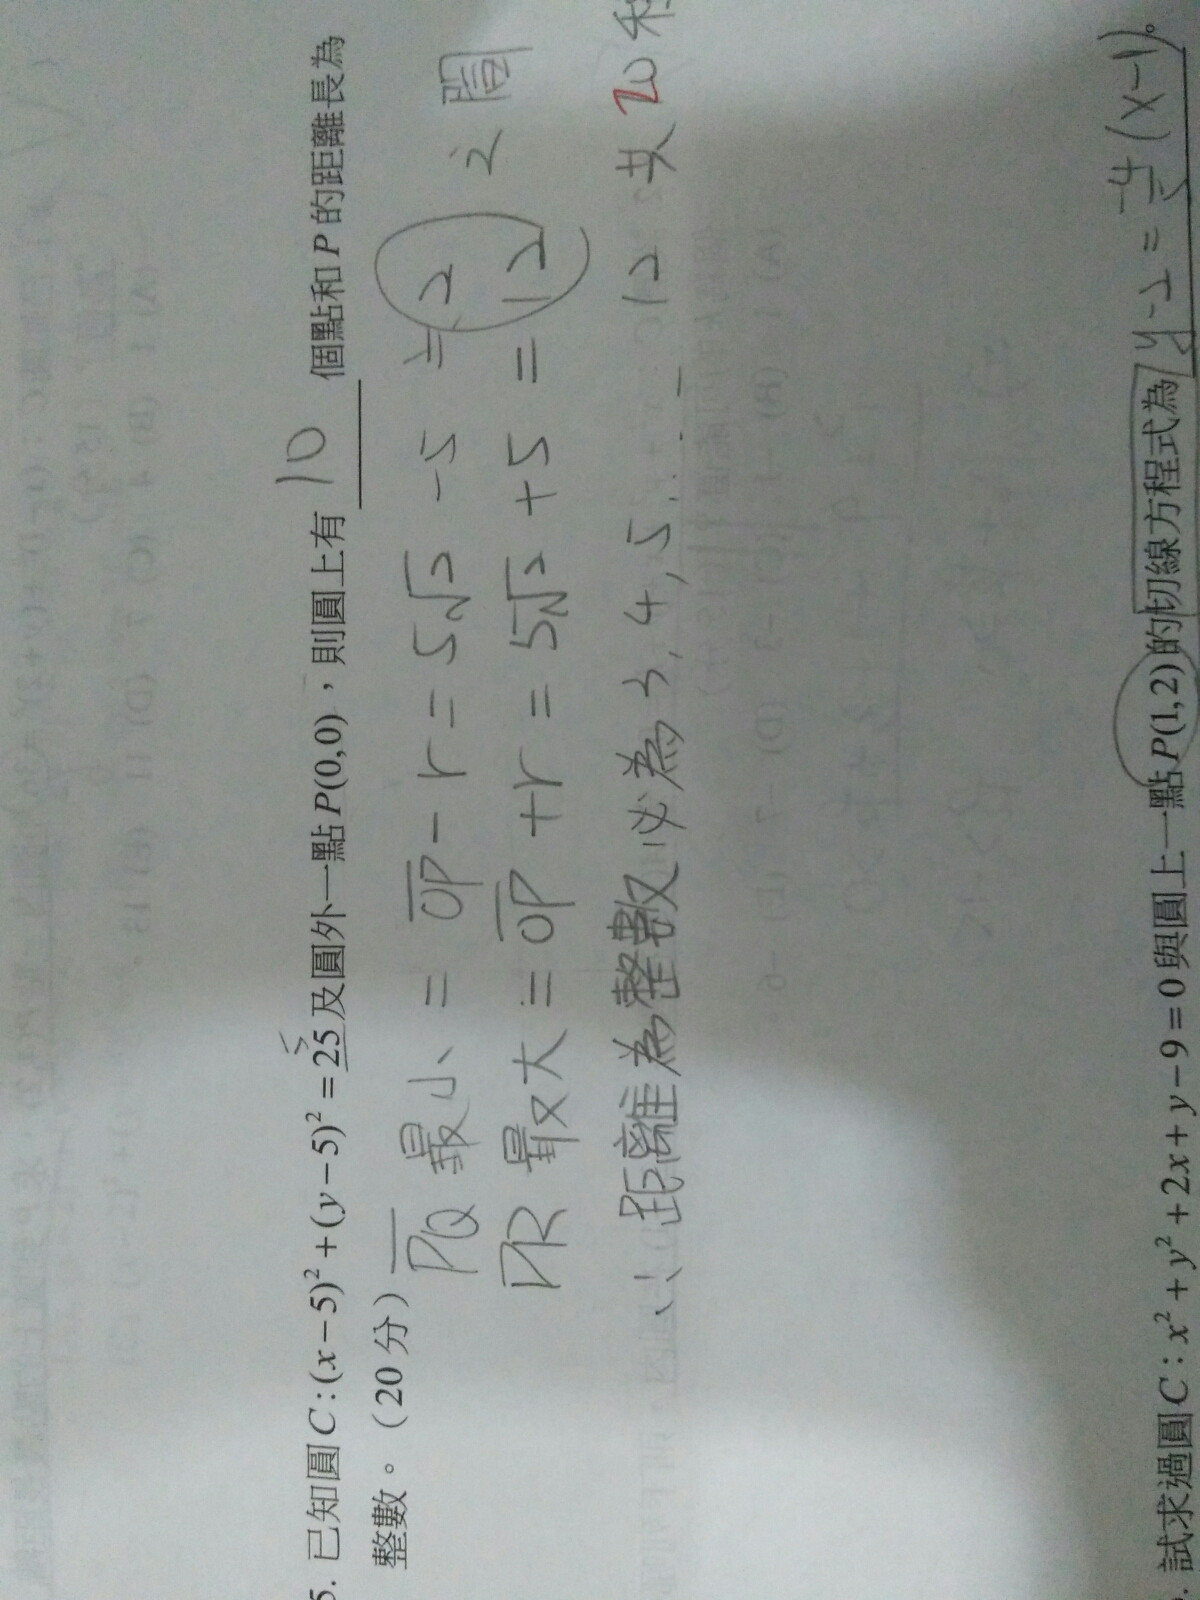 5. 已知圓 C:(x−5)²+(y−5)²=25 及圓外一點 P(0,0)，則圓上有 10 個點和 P 的距離長為
整數。（20 分）
5
PQ 最小 = OP − r = 5√2 − 5 ≒ 2
PR 最大 = OP + r = 5√2 + 5 = 12
之間
∴ 距離為整數必為 3, 4, 5, ... 12 共 20 種
試求過圓 C : x² + y² + 2x + y − 9 = 0 與圓上一點 P(1,2) 的切線方程式為 y−2 = (x−1)。